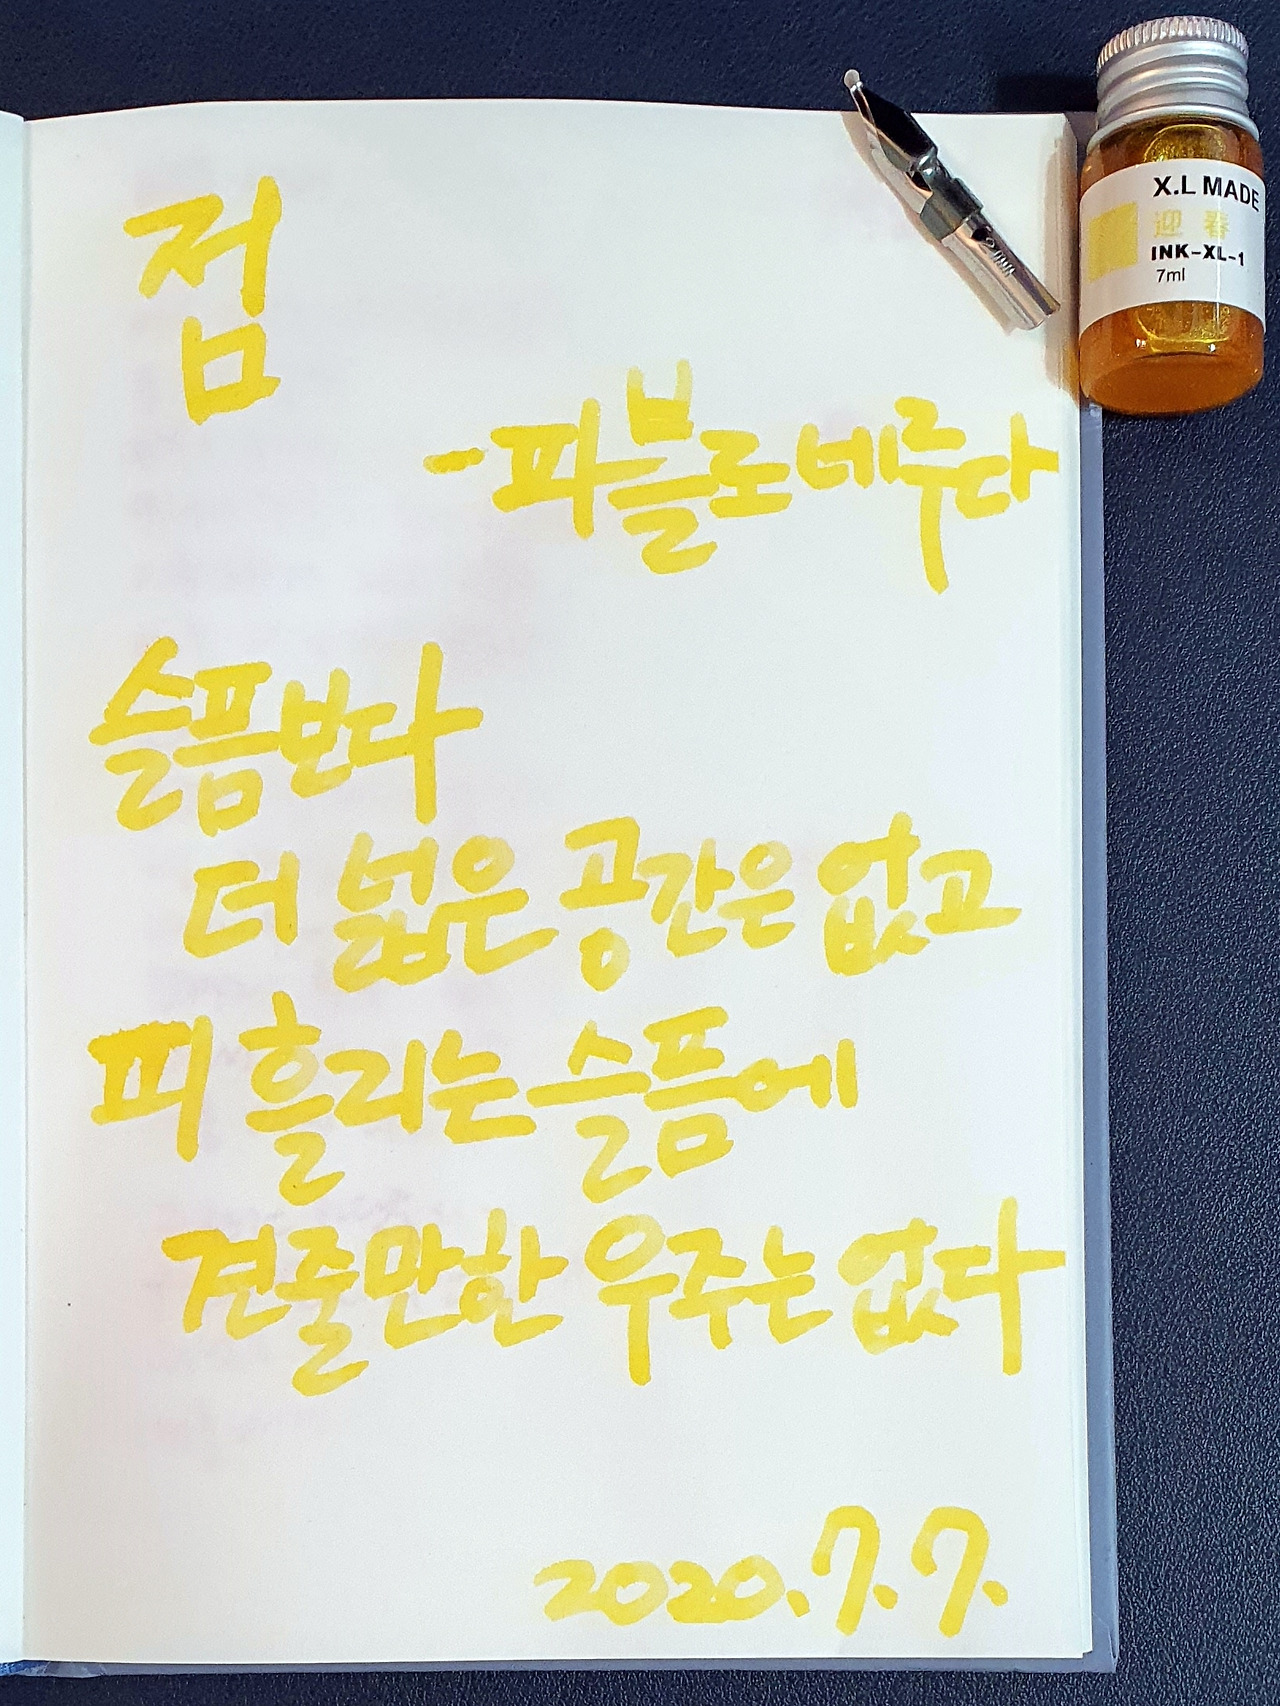 점
-파블로네루다
슬픔보다
더 넓은 공간은 없고
피 흘리는 슬픔에
견줄만한 우주는 없다
2020.7.7.
X.L MADE
迎春
INK-XL-1
7ml